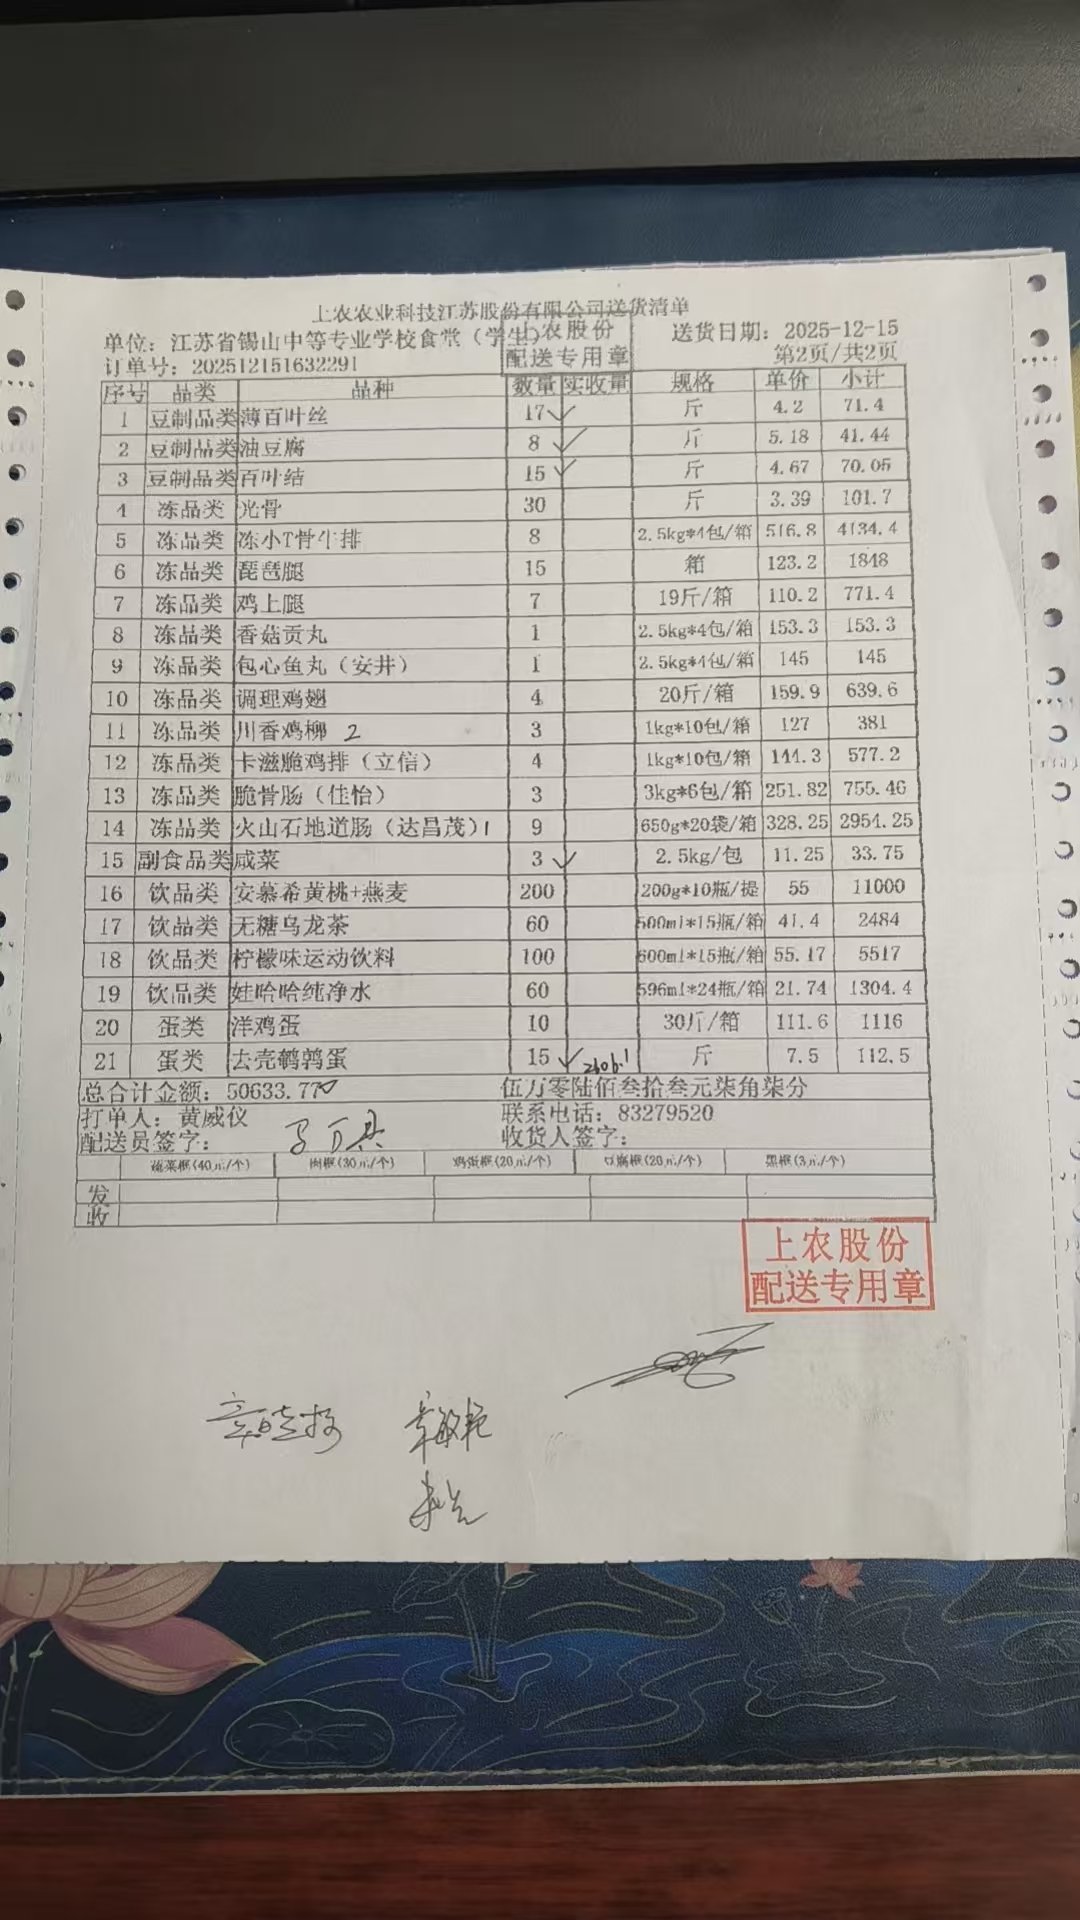 上农农业科技江苏股份有限公司送货清单
单位：江苏省锡山中等专业学校食堂（学生） 送货日期：2025-12-15
上农股份
配送专用章
订单号：202512151632291 第2页/共2页
序号 品类 品种 数量 实收量 规格 单价 小计
1 豆制品类 薄百叶丝 17 ✓ 斤 4.2 71.4
2 豆制品类 油豆腐 8 ✓ 斤 5.18 41.44
3 豆制品类 百叶结 15 ✓ 斤 4.67 70.05
4 冻品类 光骨 30 斤 3.39 101.7
5 冻品类 冻小T骨牛排 8 2.5kg*4包/箱 516.8 4134.4
6 冻品类 琵琶腿 15 箱 123.2 1848
7 冻品类 鸡上腿 7 19斤/箱 110.2 771.4
8 冻品类 香菇贡丸 1 2.5kg*4包/箱 153.3 153.3
9 冻品类 包心鱼丸（安井） 1 2.5kg*4包/箱 145 145
10 冻品类 调理鸡翅 4 20斤/箱 159.9 639.6
11 冻品类 川香鸡柳 2 3 1kg*10包/箱 127 381
12 冻品类 卡滋脆鸡排（立信） 4 1kg*10包/箱 144.3 577.2
13 冻品类 脆骨肠（佳怡） 3 3kg*6包/箱 251.82 755.46
14 冻品类 火山石地道肠（达昌茂）1 9 650g*20袋/箱 328.25 2954.25
15 副食品类 咸菜 3 ✓ 2.5kg/包 11.25 33.75
16 饮品类 安慕希黄桃+燕麦 200 200g*10瓶/提 55 11000
17 饮品类 无糖乌龙茶 60 500ml*15瓶/箱 41.4 2484
18 饮品类 柠檬味运动饮料 100 600ml*15瓶/箱 55.17 5517
19 饮品类 娃哈哈纯净水 60 596ml*24瓶/箱 21.74 1304.4
20 蛋类 洋鸡蛋 10 30斤/箱 111.6 1116
21 蛋类 去壳鹌鹑蛋 15 ✓ 2606.1 斤 7.5 112.5
总合计金额：50633.77 伍万零陆佰叁拾叁元柒角柒分
打单人：黄威仪 联系电话：83279520
配送员签字： 收货人签字：
蔬菜框(40元/个) 肉框(30元/个) 鸡蛋框(20元/个) 豆腐框(20元/个) 黑框(3元/个)
发
收
上农股份
配送专用章